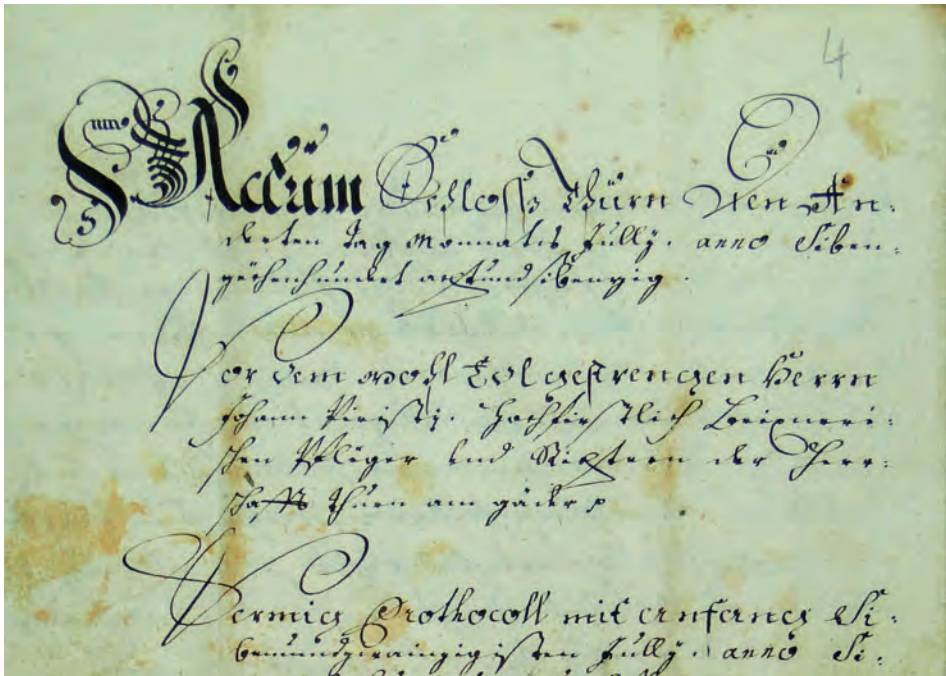 4
Actum Schloss Thurn Den An:
derten Tag Monnatis Jully. anno Siben:
zechenhundert achtundsibenzig.
Vor dem wohl Edl gestrengen Herrn
Johann Piristj. Hochfirstlich Brixneri:
schen Pfleger und Richtern der Herr:
schafft Thurn am gäder p
Vermig Prothocoll mit anfang Si:
benundzwainzigisten Jully. anno Si: